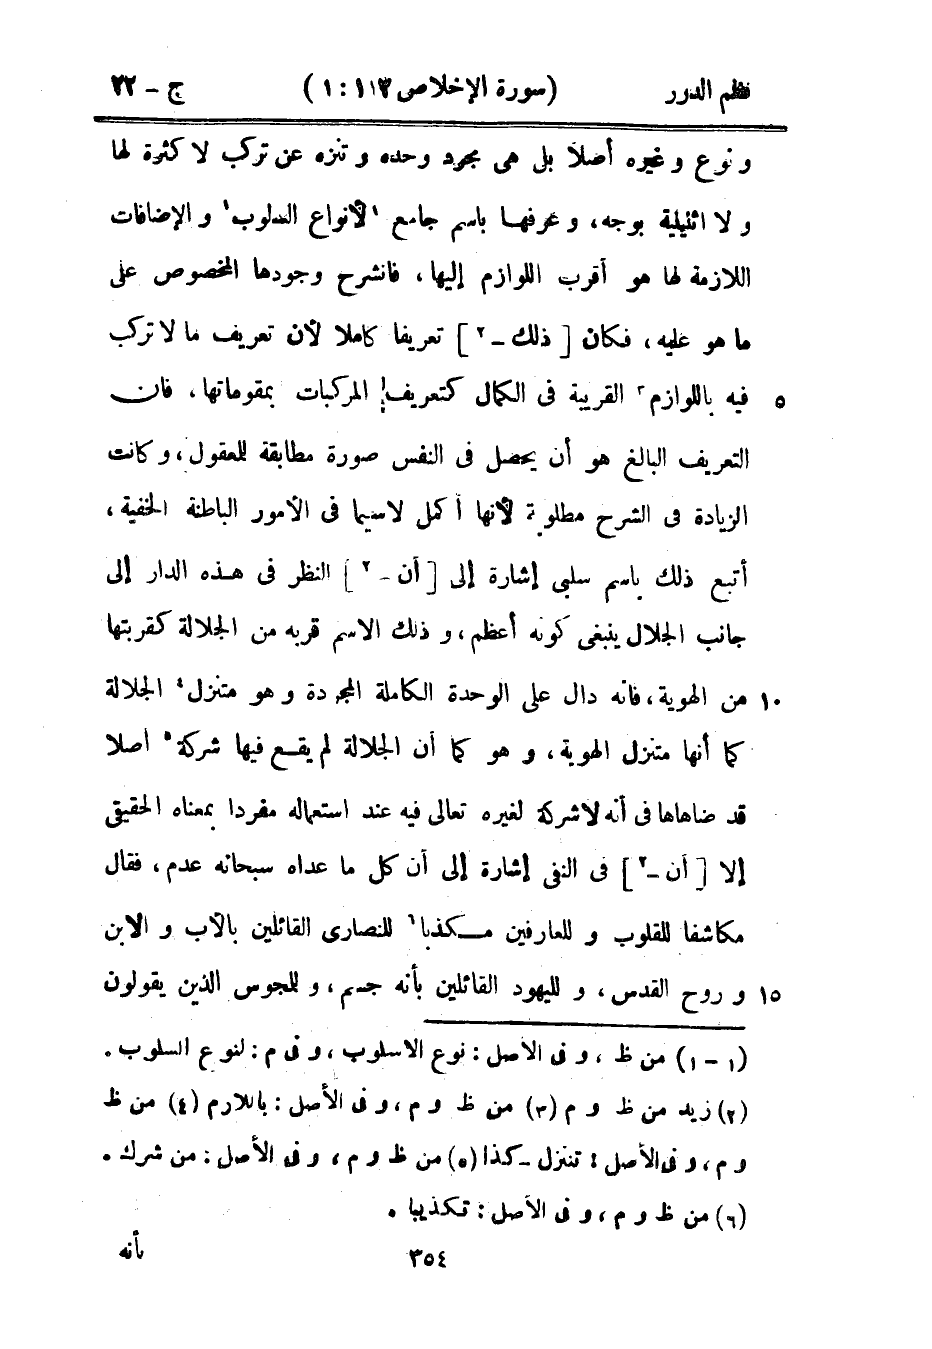 نظم الدرر (سورة الإخلاص ١١٣ : ١) ج - ٢٢
و نوع و غيره أصلا بل هى مجرد وحده و تنزه عن تركب لا كثرة لها
و لا اثنيلية بوجه، و عرفهـا باسم جامع ١لأنواع السلوب١ و الإضافات
اللازمة لها هو أقرب اللوازم إليها، فانشرح وجودها المخصوص على
ما هو عليه، فكان [ ذلك -٢ ] تعريفا كاملا لأن تعريف ما لا تركب
٥ فيه باللوازم٣ القريبة فى الكمال كتعريف المركبات بمقوماتها، فان
التعريف البالغ هو أن يحصل فى النفس صورة مطابقة للعقول، و كانت
الزيادة فى الشرح مطلوبة لأنها أكمل لاسيما فى الأمور الباطنة الخفية،
أتبع ذلك باسم سلبى إشارة إلى [ أن -٢ ] النظر فى هـذه الدار إلى
جانب الجلال ينبغى كونه أعظم، و ذلك الاسم قربه من الجلالة كقربتها
١٠ من الهوية، فانه دال على الوحدة الكاملة المجردة و هو متنزل٤ الجلالة
كما أنها متنزل الهوية، و هو كما أن الجلالة لم يقـع فيها شركة٥ أصلا
قد ضاهاها فى أنه لاشركة لغيره تعالى فيه عند استعماله مفردا بمعناه الحقيقى
إلا [ أن -٢ ] فى النفى إشارة إلى أن كل ما عداه سبحانه عدم، فقال
مكاشفا للقلوب و للعارفين مـكذبا٦ للنصارى القائلين بالأب و الابن
١٥ و روح القدس، و لليهود القائلين بأنه جسم، و للمجوس الذين يقولون
(١ - ١) من ظ، و فى الأصل: نوع الاسلوب، و فى م: لنوع السلوب.
(٢) زيد من ظ و م (٣) من ظ و م، و فى الأصل: باللارم (٤) من ظ
و م، و فى الأصل: تتنزل - كذا (٥) من ظ و م، و فى الأصل: من شرك.
(٦) من ظ و م، و فى الأصل: تكذيبا.
٣٥٤ بأنه